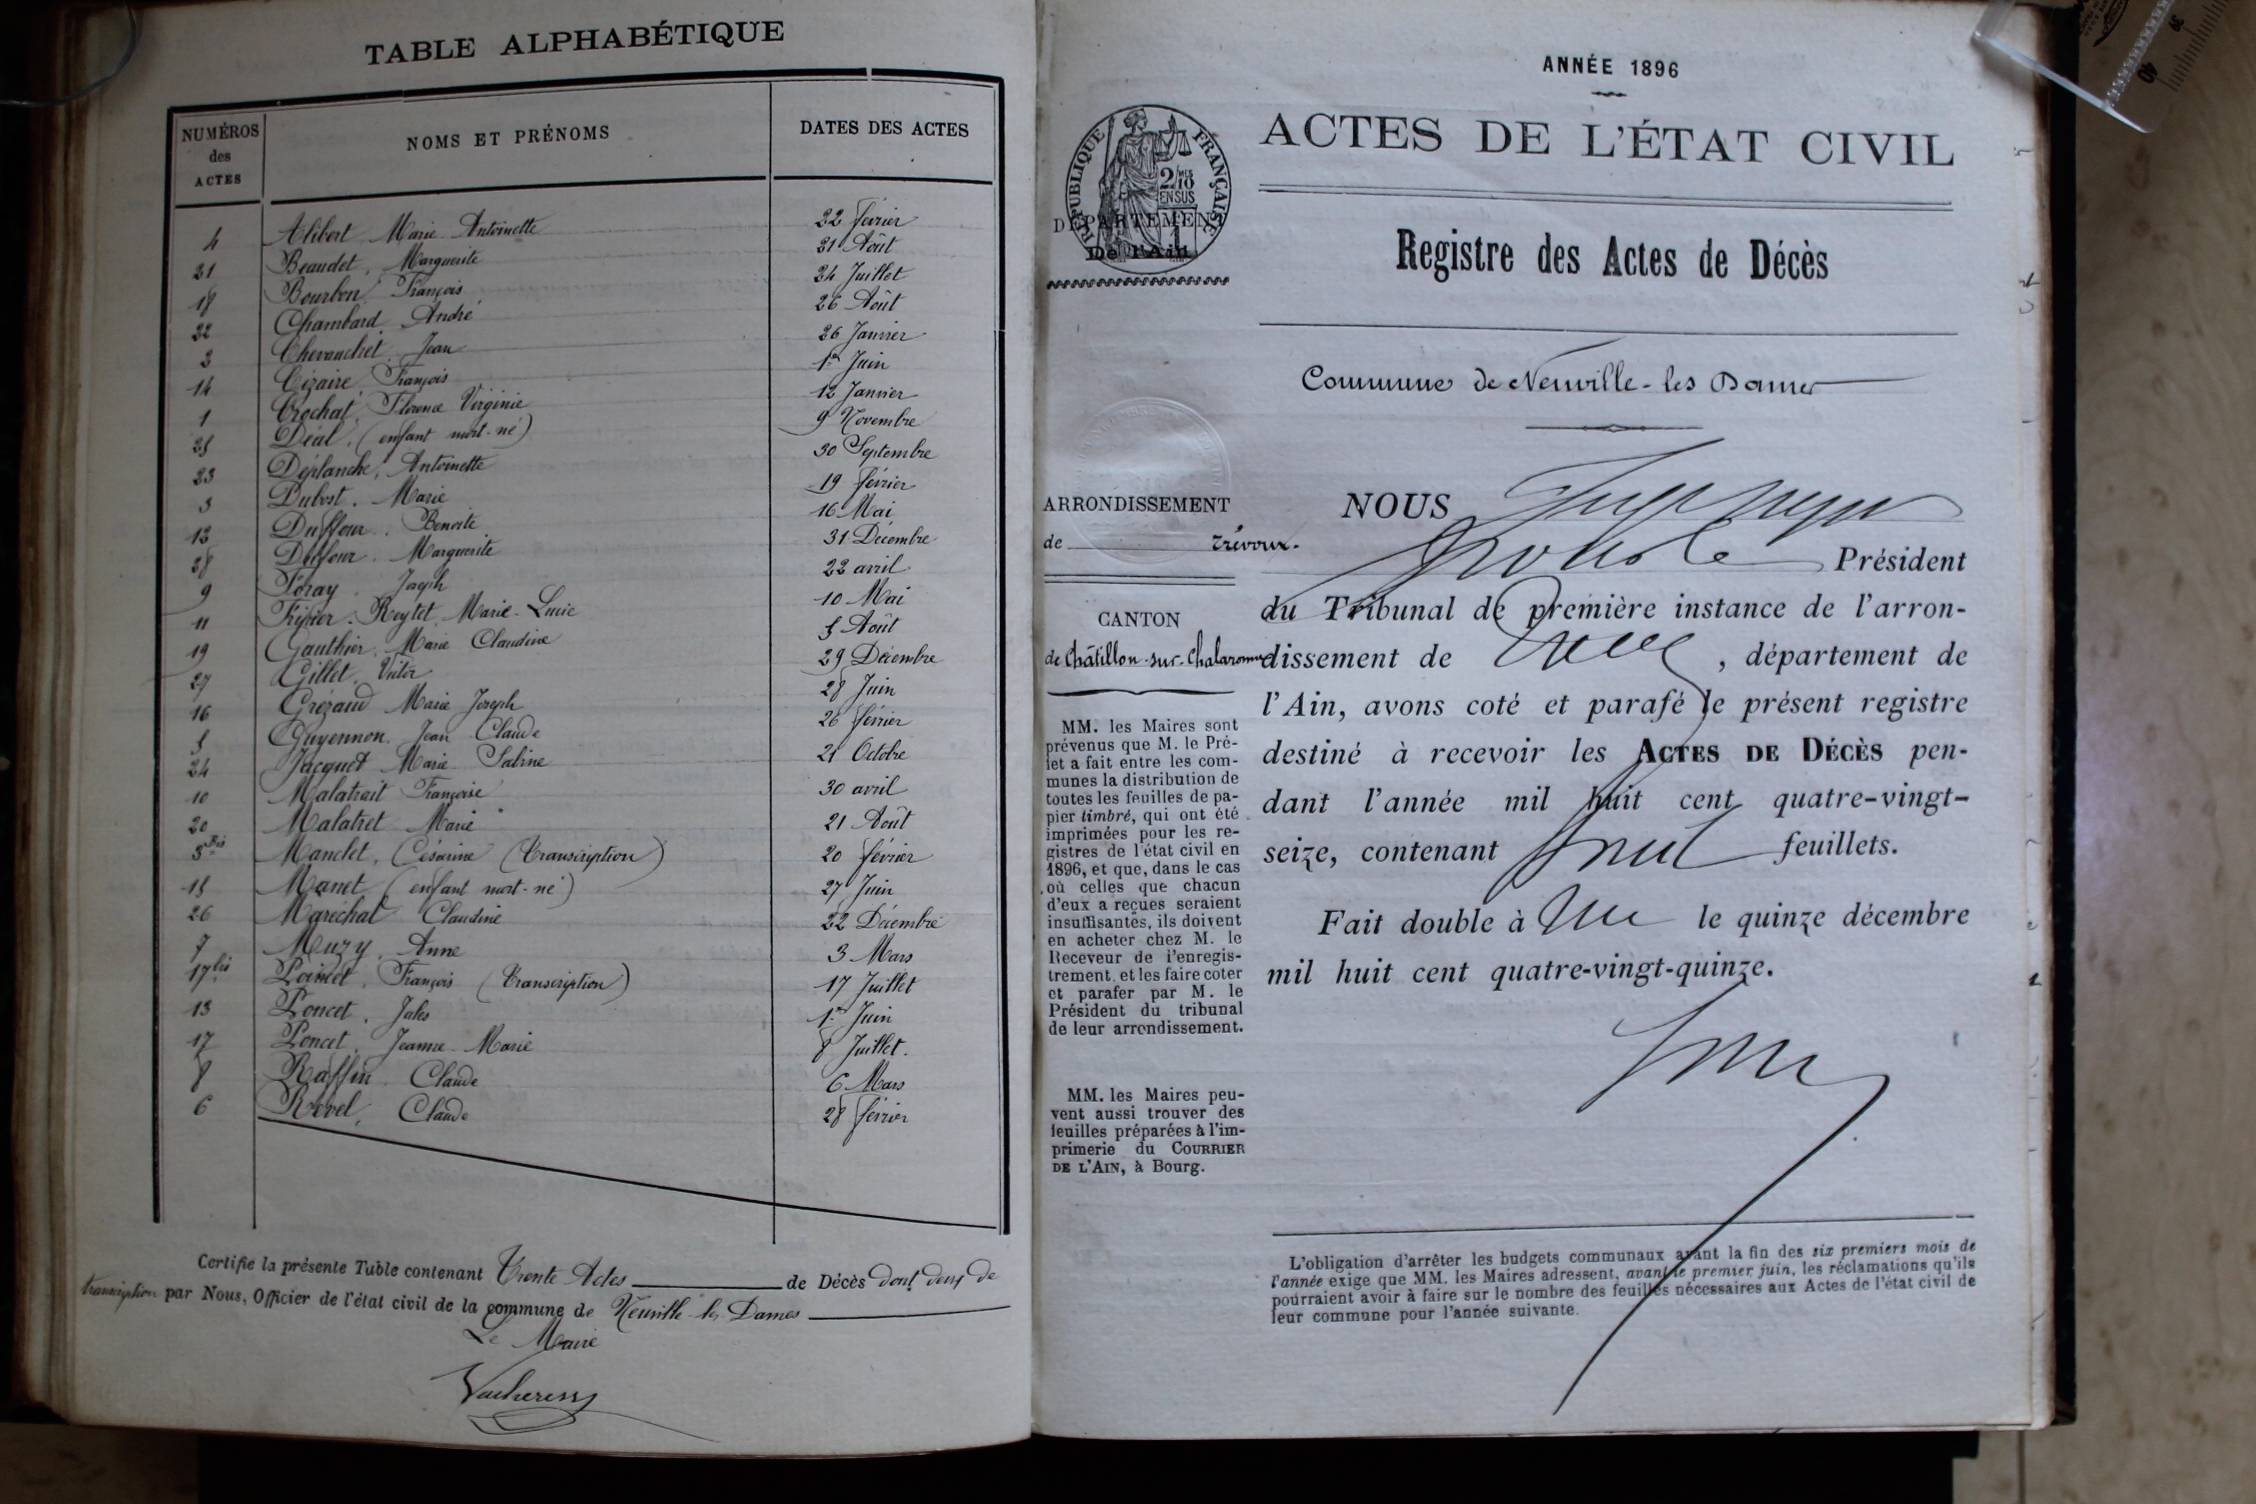 TABLE ALPHABÉTIQUE
NUMÉROS des ACTES NOMS ET PRÉNOMS DATES DES ACTES
4 Alibert Marie Antoinette 22 février
21 Beaudet, Marguerite 21 Août
18 Bourbon François 24 Juillet
22 Chambard André 26 Août
2 Chevauchet Jean 26 Janvier
14 Cézaire François 1er Juin
1 Crochat Florence Virginie 12 Janvier
25 Déal, (enfant mort-né) 9 Novembre
23 Déplanche, Antoinette 30 Septembre
3 Dubost. Marie 19 février
12 Duffour. Benoite 16 Mai
28 Dufour. Marguerite 31 Décembre
9 Foray. Joseph 22 avril
11 Marie-Lucie 10 Mai
19 Gauthier. Marie Claudine 5 Août
27 Gillet. Victor 29 Décembre
16 Grézaud Marie Joseph 28 Juin
5 Guyennon. Jean Claude 26 février
24 Jacquet Marie Sabine 21 Octobre
10 Malatrait Françoise 30 avril
20 Malatret Marie 21 Août
3 Bis Manclet, Césarine (Transcription) 20 février
15 Manet (enfant mort-né) 27 Juin
26 Maréchal Claudine 22 Décembre
7 Muzy. Anne 3 Mars
17 bis François (Transcription) 17 Juillet
13 Poncet. Jules 1er Juin
17 Poncet. Jeanne-Marie 8 Juillet.
8 Raffin. Claude 6 Mars
6 Revel, Claude 28 février
Certifie la présente Table contenant Trente Actes de Décès dont deux de
transcription par Nous, Officier de l'état civil de la commune de Neuville-les-Dames
Le Maire
ANNÉE 1896
RÉPUBLIQUE FRANÇAISE
2/10 MES
EN SUS
ACTES DE L'ÉTAT CIVIL
DÉPARTEMENT
De l'Ain
Registre des Actes de Décès
Commune de Neuville-les-Dames
ARRONDISSEMENT
de Trévoux.
CANTON
de Châtillon-sur-Chalaronne
MM. les Maires sont
prévenus que M. le Pré-
fet a fait entre les com-
munes la distribution de
toutes les feuilles de pa-
pier timbré, qui ont été
imprimées pour les re-
gistres de l'état civil en
1896, et que, dans le cas
où celles que chacun
d'eux a reçues seraient
insuffisantes, ils doivent
en acheter chez M. le
Receveur de l'enregis-
trement et les faire coter
et parafer par M. le
Président du tribunal
de leur arrondissement.
MM. les Maires peu-
vent aussi trouver des
feuilles préparées à l'im-
primerie du COURRIER
DE L'AIN, à Bourg.
NOUS
Président
du Tribunal de première instance de l'arron-
dissement de , département de
l'Ain, avons coté et parafé le présent registre
destiné à recevoir les ACTES DE DÉCÈS pen-
dant l'année mil huit cent quatre-vingt-
seize, contenant feuillets.
Fait double à le quinze décembre
mil huit cent quatre-vingt-quinze.
L'obligation d'arrêter les budgets communaux avant la fin des six premiers mois de
l'année exige que MM. les Maires adressent, avant le premier juin, les réclamations qu'ils
pourraient avoir à faire sur le nombre des feuilles nécessaires aux Actes de l'état civil de
leur commune pour l'année suivante.
40